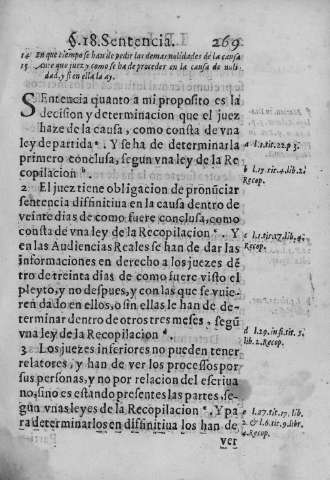 §. 18. Sentencia. 269
14 En que tiempo se han de pedir las demas nulidades de la causa
15 Ante que juez y como se ha de proceder en la causa de nuli-
dad, y si en ella la ay.
SEntencia quanto a mi proposito es la
decision y determinacion que el juez
haze de la causa, como consta de vna
ley de partida ª. Y se ha de determinarla
primero conclusa, segun vna ley de la Re
copilacion ᵇ.
2 El juez tiene obligacion de pronũciar
sentencia diffinitiua en la causa dentro de
veinte dias de como fuere conclusa, como
consta de vna ley de la Recopilacion ᶜ. Y
en las Audiencias Reales se han de dar las
informaciones en derecho a los juezes dẽ
tro de treinta dias de como fuere visto el
pleyto, y no despues, y con las que se vuie-
ren dado en ellos, o sin ellas le han de de-
terminar dentro de otros tres meses, segũ
vna ley de la Recopilacion ᵈ.
3 Los juezes inferiores no pueden tener
relatores, y han de ver los processos por
sus personas, y no por relacion del escriua
no, sino es estando presentes las partes, se-
gun vnas leyes de la Recopilacion ᵉ. Y pa
ra determinarlos en diffinitiua los han de
ver
a l.1.tit.22.p 3.
b l.15.tit.4.lib.2.
Recop.
c l.1.tit.17.lib.4.
Recop.
d l.29.in fi.tit.5.
lib.2.Recop.
e l.27.tit.17.lib.
2.& l.6.tit.9.libr.
4.Recop.